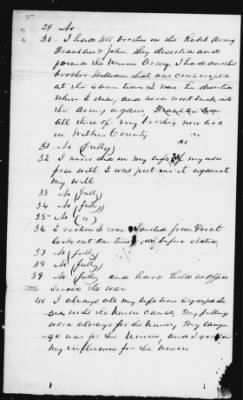 29 No
30 I had two brothers in the Rebel Army
Franklin & John. they deserted and
joined the Union Army. I had another
brother William that was conscripted
at the same time I was. he deserted
when I did, and never went back into
the Army again
all three of my brothers now live
in Wilkes County
31 No (fully)
32 I never did in my life of my own
free will. I was just it against
my will
33 No (fully)
34 No (fully)
35 No (")
36 I reckon I was
out one time before
37 No (fully)
38 No (fully)
39 No (fully) and have held no office
since the war
40 I always all my life time sympathi-
with the Union cause. My feelings
were always for the Union, my langua-
ge was for the Union, and I
my influence for the Union